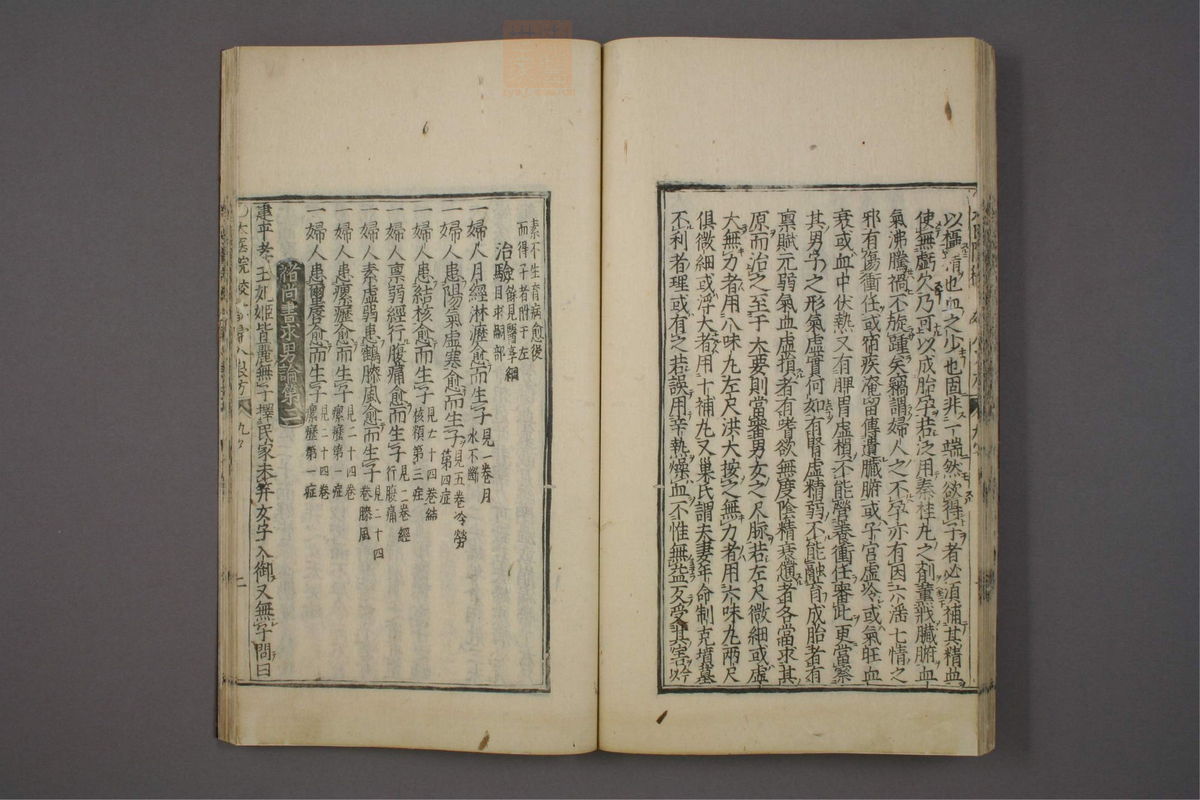 以攝精也血之少也固非一端然欲得子者必須補其精血
使無虧欠乃可以成胎孕若泛用秦桂丸之剤薰戕臓腑血
氣沸騰禍不旋踵矣竊謂婦人之不孕亦有因六滛七情之
邪有傷衝任或宿疾淹留傳遺臓腑或子宮虚冷或氣旺血
衰或血中伏熱又有脾胃虚損不能營養衝任審此更當察
其男子之形氣虚實何如有腎虚精弱不能融育成胎者有
禀賦元弱氣血虚損者有嗜欲無度陰精衰憊者各當求其
原而治之至于大要則當審男女之尺脉若左尺微細或虚
大無力者用八味丸左尺洪大按之無力者用六味丸兩尺
俱微細或浮大者用十補丸又巣氏謂夫妻年命制克墳墓
不利者理或有之若誤用辛熱燥血不惟無益反受其害今以
素不生育病愈後
而得子者附于左
治驗餘見醫案綱
目求嗣部
一婦人月經淋瀝愈而生子見一卷月
水不斷
一婦人患陽氣虚寒愈而生子見五卷冷勞
第四症
一婦人患結核愈而生子見二十四卷結
核類第三症
一婦人禀弱經行腹痛愈而生子見二卷經
行腹痛
一婦人素虚弱患鶴膝風愈而生子見二十四
卷膝風
一婦人患瘰癧愈而生子見二十四卷
瘰癧第一症
一婦人患繭唇愈而生子見二十四卷
瘰癧第一症
褚尚書求男論第二
建平孝王妃姬皆麗無子擇民家未笄女子入御又無子問曰
婦人良方 九
二